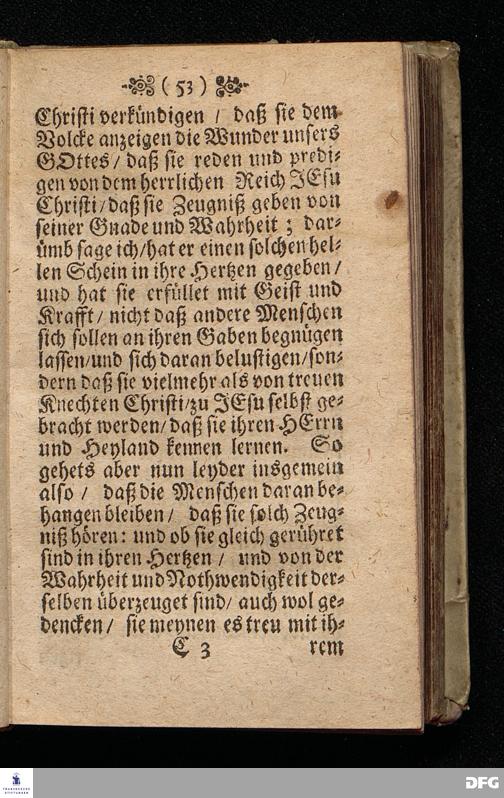 ( 53 )
Christi verkündigen / daß sie dem
Volcke anzeigen die Wunder unsers
GOttes / daß sie reden und predi-
gen von dem herrlichen Reich JEsu
Christi / daß sie Zeugniß geben von
seiner Gnade und Wahrheit ; dar-
ümb sage ich / hat er einen solchen hel-
len Schein in ihre Hertzen gegeben /
und hat sie erfüllet mit Geist und
Krafft / nicht daß andere Menschen
sich sollen an ihren Gaben begnügen
lassen / und sich daran belustigen / son-
dern daß sie vielmehr als von treuen
Knechten Christi / zu JEsu selbst ge-
bracht werden / daß sie ihren HErrn
und Heyland kennen lernen. So
gehets aber nun leyder insgemein
also / daß die Menschen daran be-
hangen bleiben / daß sie solch Zeug-
niß hören : und ob sie gleich gerühret
sind in ihren Hertzen / und von der
Wahrheit und Nothwendigkeit der-
selben überzeuget sind / auch wol ge-
dencken / sie meynen es treu mit ih-
C 3 rem
FRANCKESCHE
STIFTUNGEN
DFG